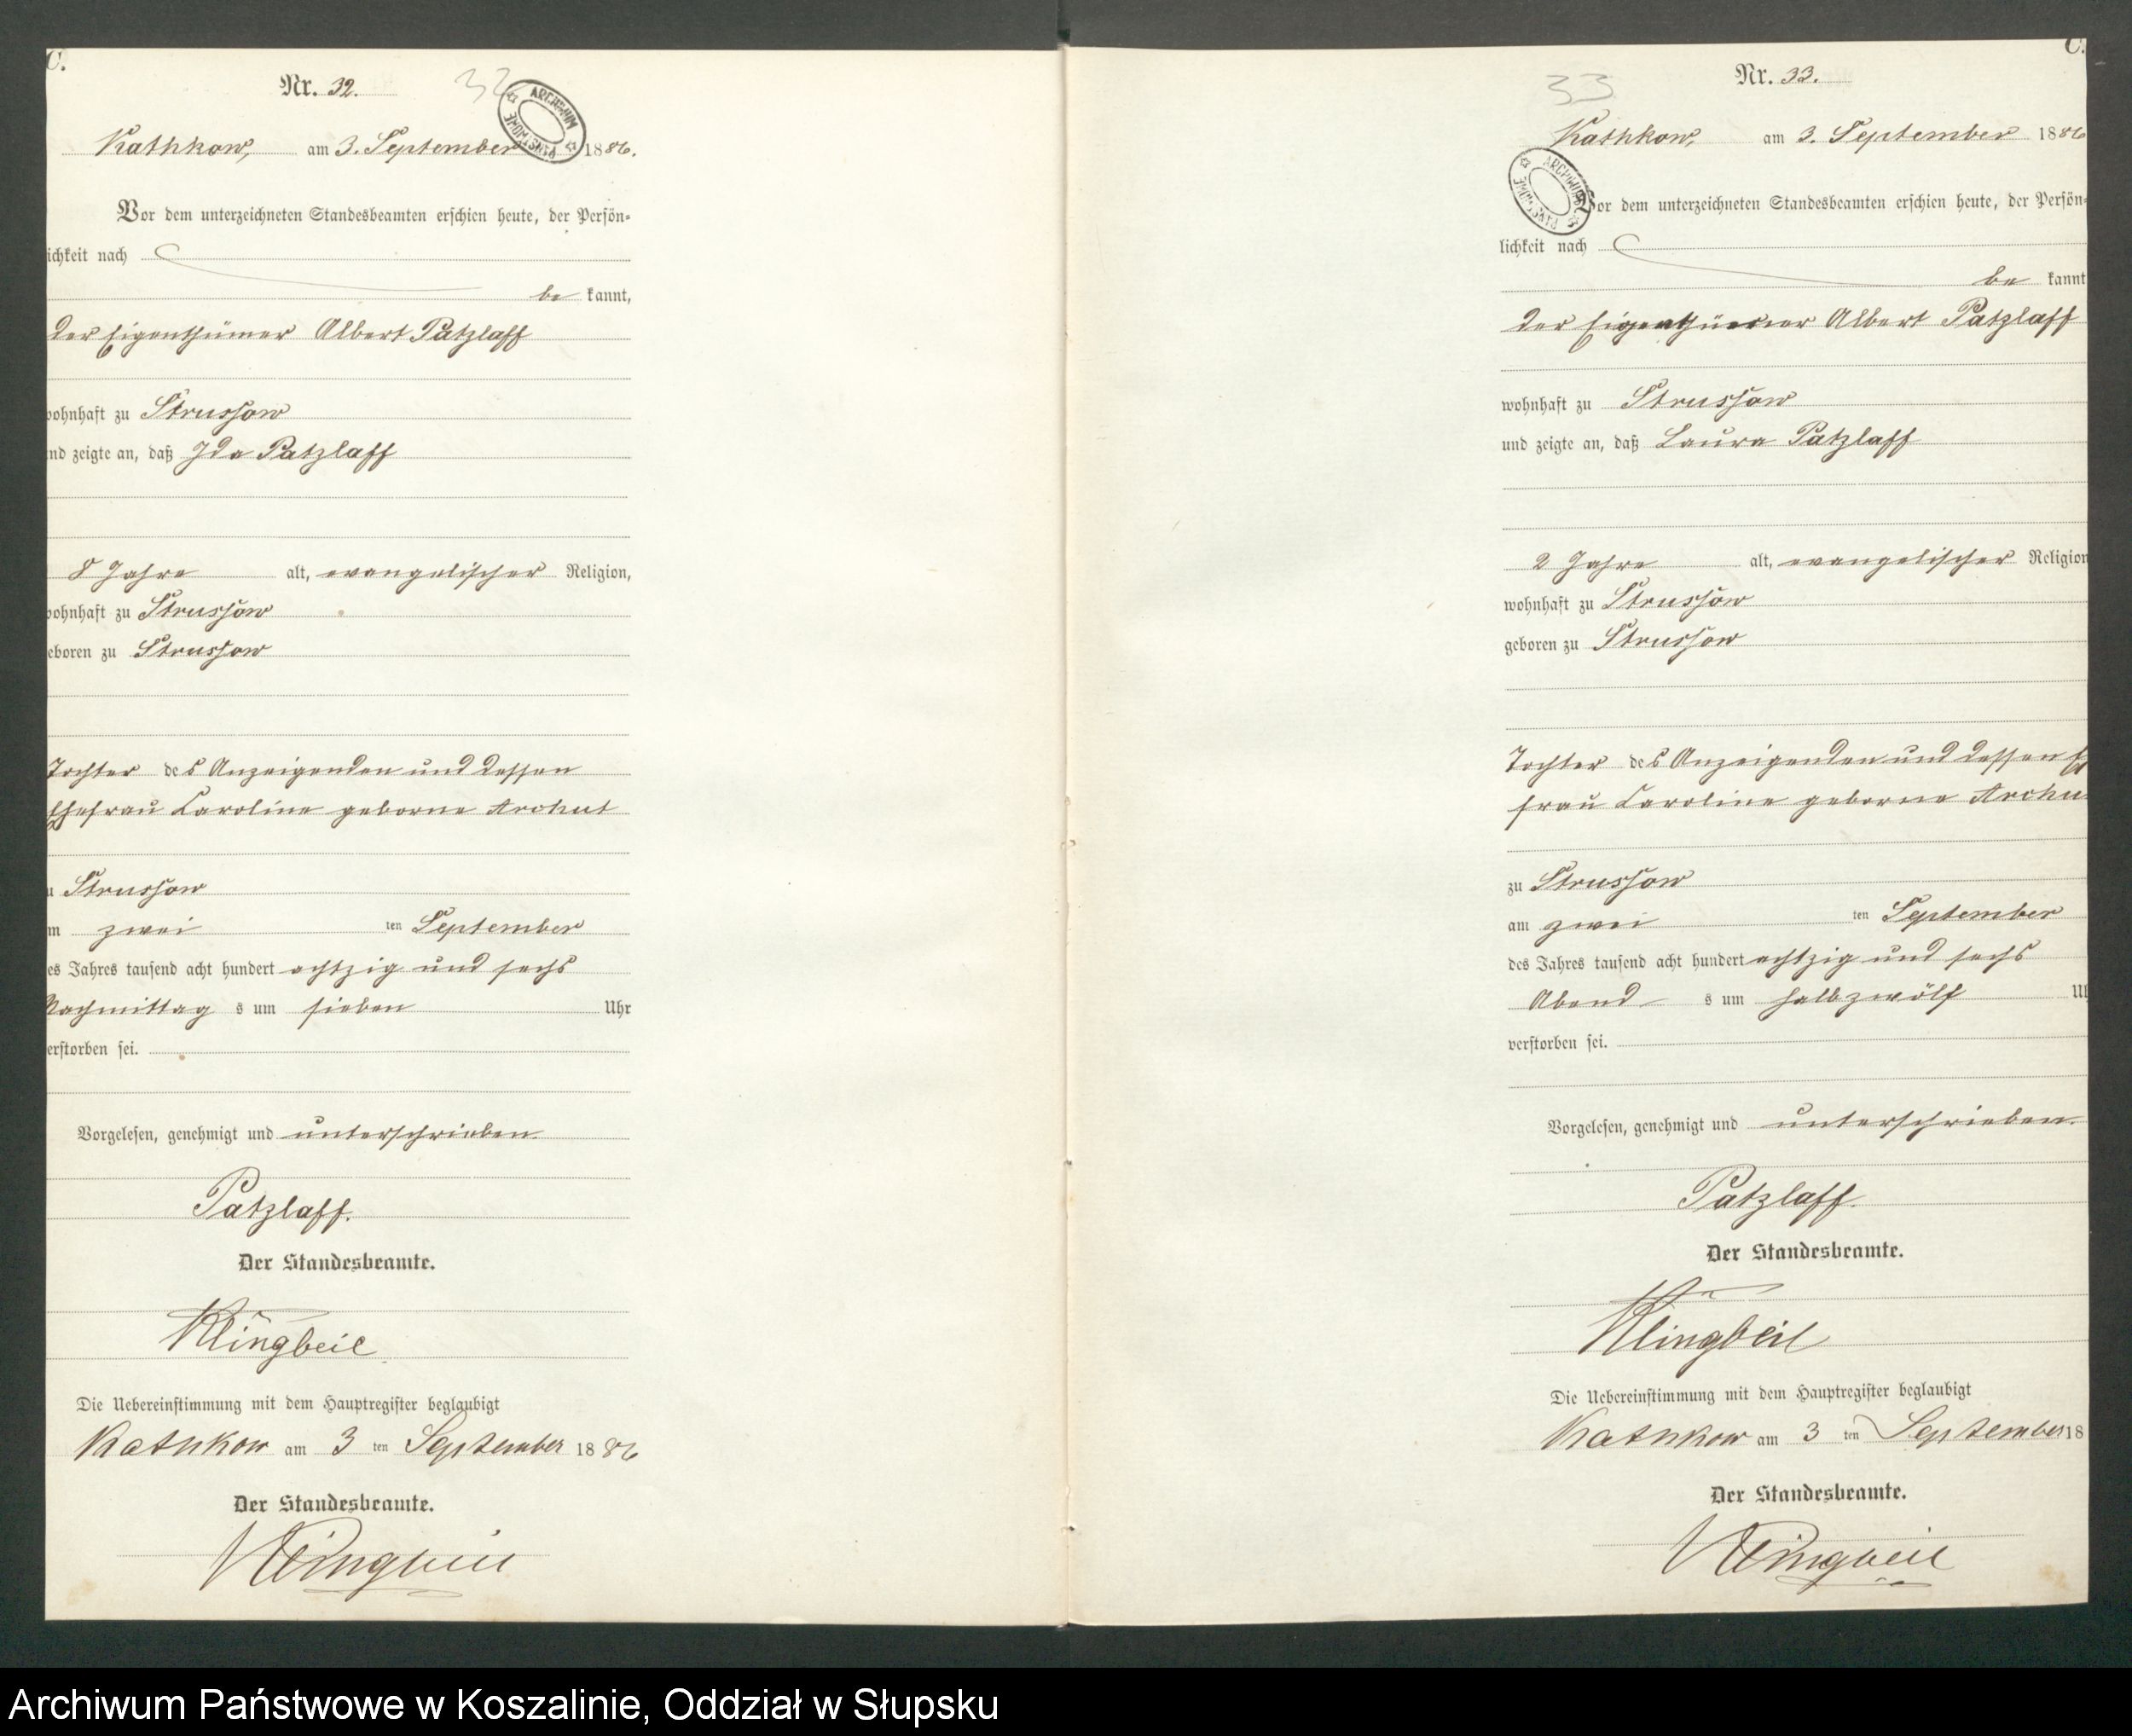 C.
Nr. 32.
32
ARCHIWUM PAŃSTWOWE
Kathkow, am 3. September 1886.
Vor dem unterzeichneten Standesbeamten erschien heute, der Persön-
ichkeit nach
be kannt,
der Eigenthümer Albert Patzlaff
wohnhaft zu Strussow
nd zeigte an, daß Ida Patzlaff
8 Jahre alt, evangelischer Religion,
wohnhaft zu Strussow
eboren zu Strussow
Tochter des Anzeigenden und dessen
Ehefrau Caroline geborne Archut
u Strussow
m zwei ten September
es Jahres tausend acht hundert achtzig und sechs
Nachmittag s um sieben Uhr
erstorben sei.
Vorgelesen, genehmigt und unterschrieben.
Patzlaff.
Der Standesbeamte.
Klingbeil
Die Uebereinstimmung mit dem Hauptregister beglaubigt
Kathkow am 3 ten September 1886
Der Standesbeamte.
Klingbeil
C.
Nr. 33.
33
ARCHIWUM PAŃSTWOWE
Kathkow, am 3. September 1886
Vor dem unterzeichneten Standesbeamten erschien heute, der Persön-
lichkeit nach
be kannt
der Eigenthümer Albert Patzlaff
wohnhaft zu Strussow
und zeigte an, daß Laura Patzlaff
2 Jahre alt, evangelischer Religion
wohnhaft zu Strussow
geboren zu Strussow
Tochter des Anzeigenden und dessen Eh
frau Caroline geborne Archu
zu Strussow
am zwei ten September
des Jahres tausend acht hundert achtzig und sechs
Abend s um halb zwölf Uh
verstorben sei.
Vorgelesen, genehmigt und unterschrieben.
Patzlaff.
Der Standesbeamte.
Klingbeil
Die Uebereinstimmung mit dem Hauptregister beglaubigt
Kathkow am 3 ten September 18
Der Standesbeamte.
Klingbeil
Archiwum Państwowe w Koszalinie, Oddział w Słupsku